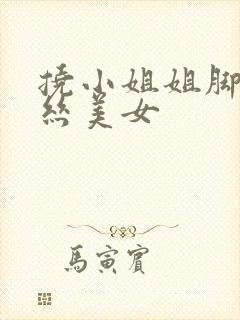 挠小姐姐脚
丝美女
馬寅賓